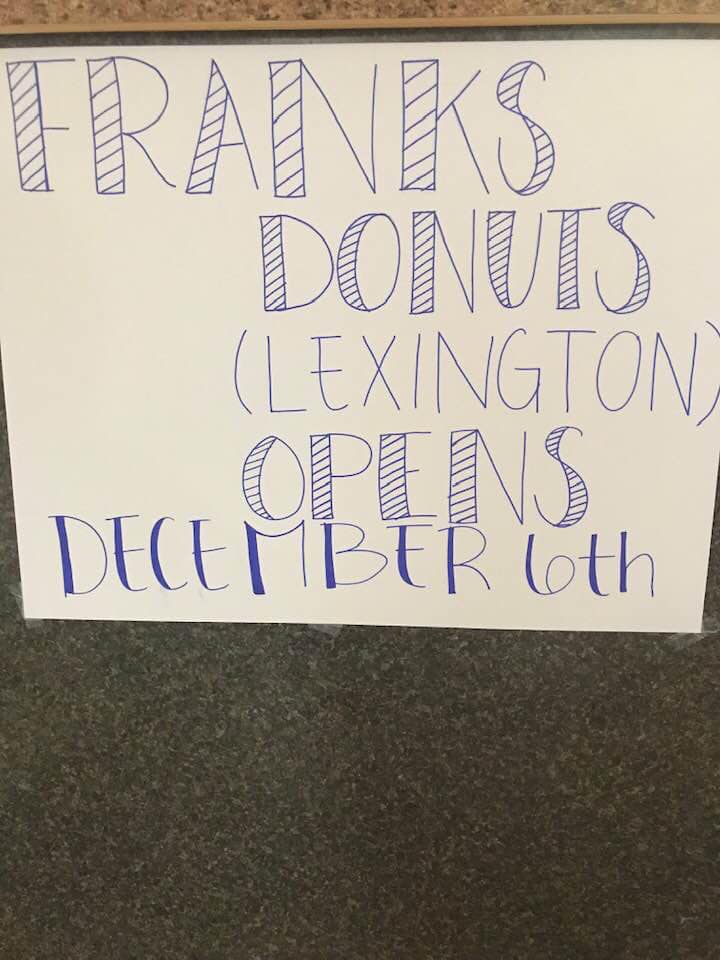 FRANKS
DONUTS
(LEXINGTON)
OPENS
DECEMBER 6th